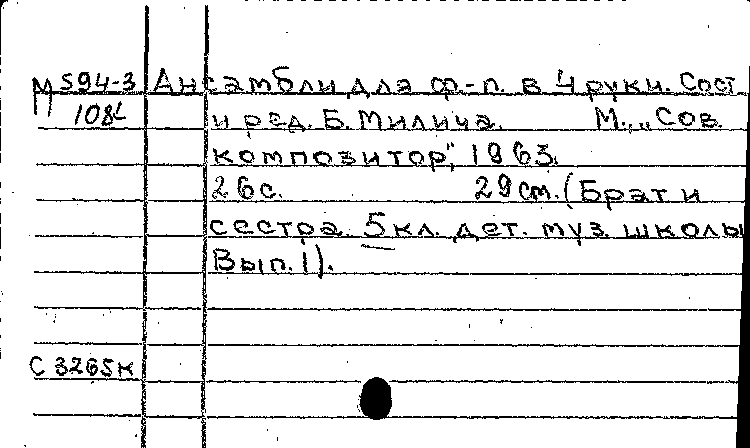 М 594-3 Ансамбли для ф-п. в 4 руки. Сост.
108 и ред. Б. Милича. М., „Сов.
композитор", 1963.
26с. 29 см. (Брат и
сестра. 5 кл. дет. муз. школы
Вып. 1).
С 3265к